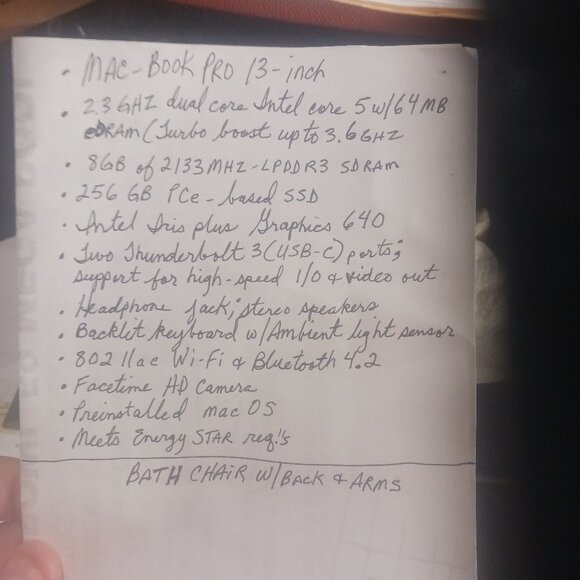 • MAC-BOOK PRO 13-inch
• 2.3 GHZ dual core Intel core 5 w/64 MB
eDRAM (Turbo boost up to 3.6 GHZ
• 8GB of 2133 MHZ-LPDDR3 SDRAM
• 256 GB PCe-based SSD
• Intel Iris plus Graphics 640
• Two Thunderbolt 3 (USB-C) ports;
support for high-speed I/O & video out
• Headphone jack; stereo speakers
• Backlit keyboard w/Ambient light sensor
• 802 11ac Wi-Fi & Bluetooth 4.2
• Facetime HD Camera
• Preinstalled mac OS
• Meets Energy STAR req.'s
BATH CHAIR W/BACK & ARMS